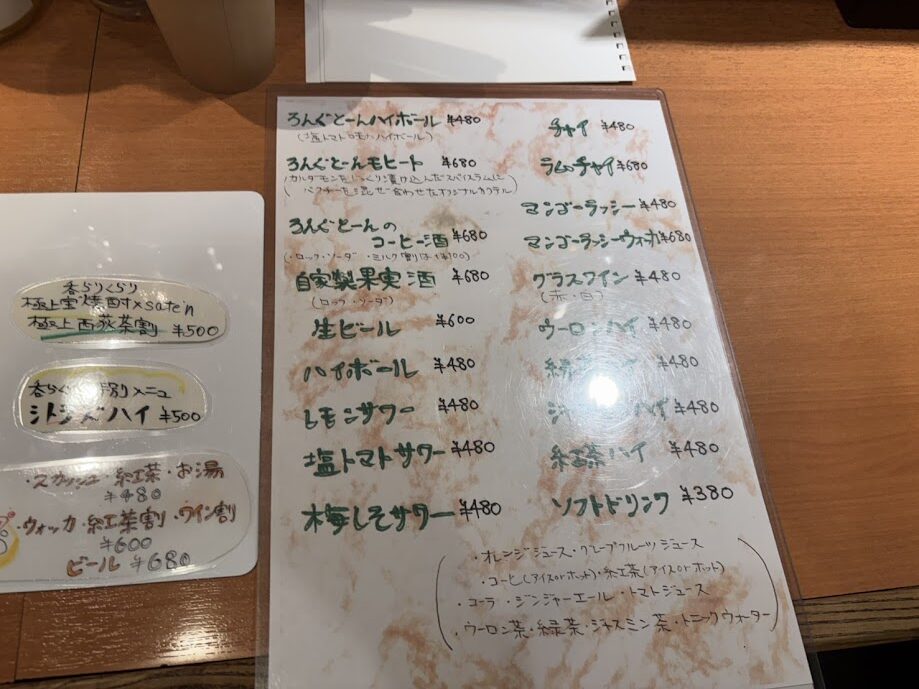 ろんぐとーんハイボール ¥480
(塩トマト味ハイボール)
ろんぐとーんモヒート ¥680
(カルダモンをじっくり漬け込んだスパイスラムに
パクチーを混ぜ合わせたオリジナルカクテル)
ろんぐとーんの
コーヒー酒 ¥680
(・ロック・ソーダ ・ミルク割りは+¥100)
自家製果実酒 ¥680
(ロック・ソーダ)
生ビール ¥600
ハイボール ¥480
レモンサワー ¥480
塩トマトサワー ¥480
梅しそサワー ¥480
チャイ ¥480
ラムチャイ ¥680
マンゴーラッシー ¥480
マンゴーラッシーウォッカ ¥680
グラスワイン ¥480
(赤・白)
ウーロンハイ ¥480
緑茶ハイ ¥480
ハイ ¥480
紅茶ハイ ¥480
ソフトドリンク ¥380
・オレンジジュース・グレープフルーツジュース
・コーヒー(アイスorホット)・紅茶(アイスorホット)
・コーラ・ジンジャーエール・トマトジュース
・ウーロン茶・緑茶・ジャスミン茶・トニックウォーター
呑らりくらり
極上
極上西荻茶割 ¥500
メニュー
ハイ ¥500
・スカッシュ・紅茶・お湯
¥480
・ウォッカ・紅茶割・ワイン割
¥600
ビール ¥680